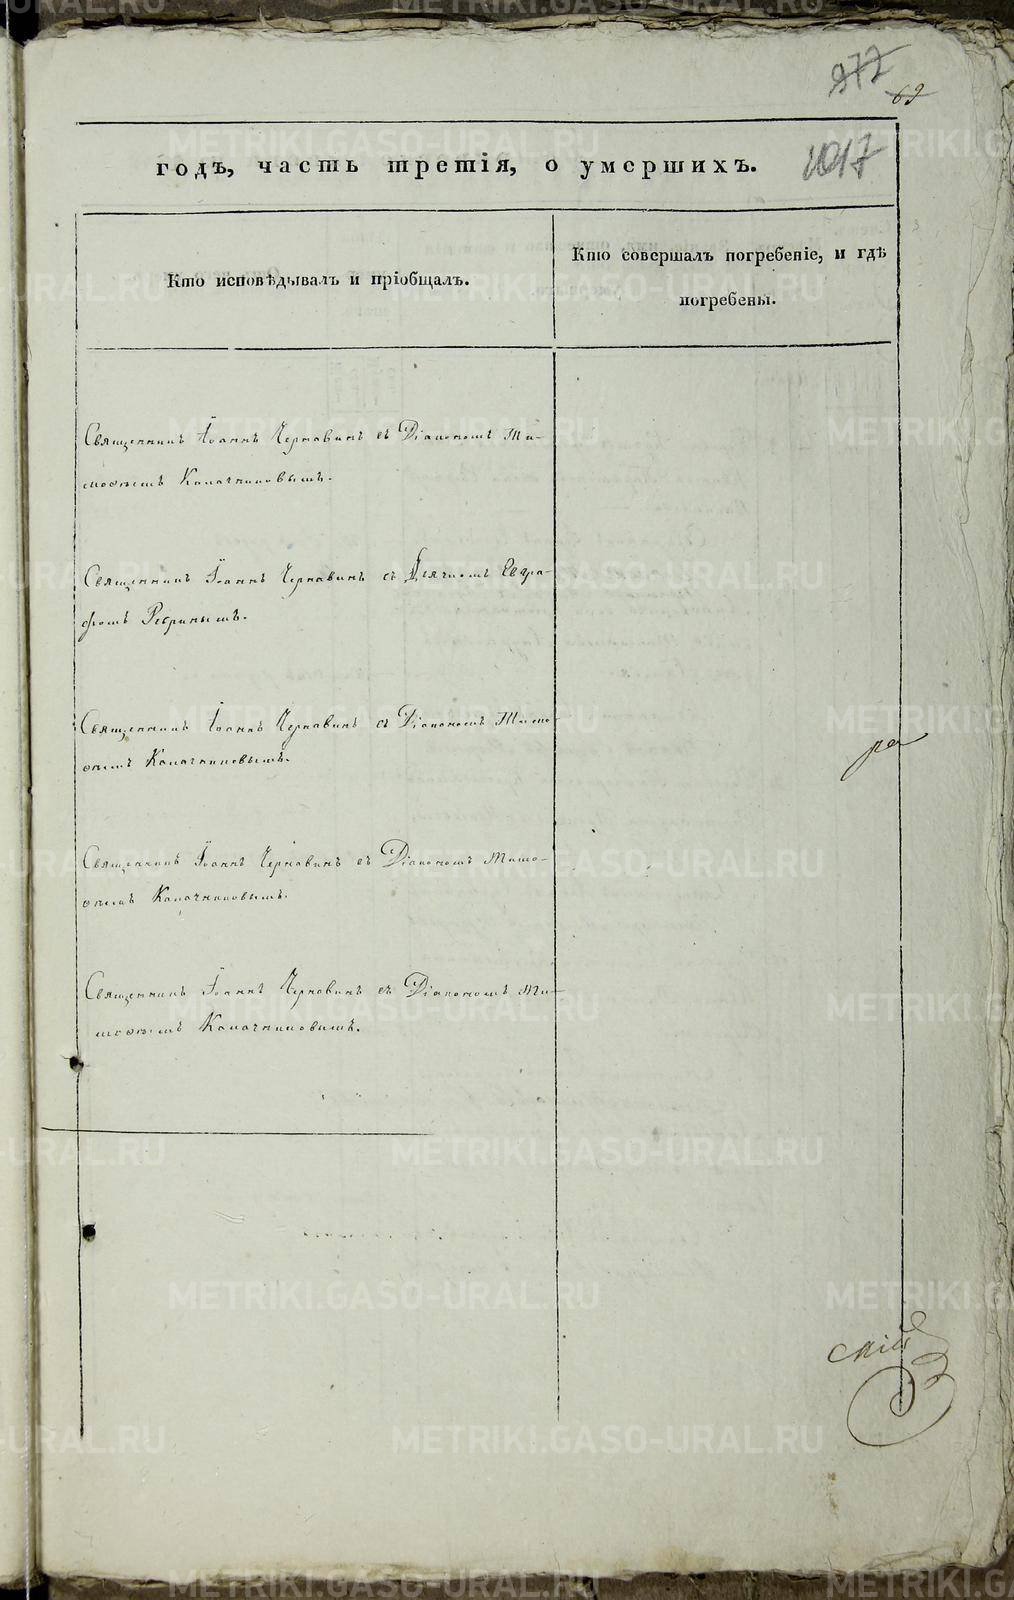 977
69
1017
годъ, часть третія, о умершихъ.
Кто исповѣдывалъ и пріобщалъ.
Кто совершалъ погребеніе, и гдѣ
погребены.
Священникъ Іоаннъ Чернавинъ съ Діакономъ Ти-
моѳеемъ Калачниковымъ.
Священникъ Іоаннъ Чернавинъ съ Дьячкомъ Евгра-
фомъ Ребринымъ.
Священникъ Іоаннъ Чернавинъ съ Діакономъ Тимо-
ѳеемъ Калачниковымъ.
ра
Священникъ Іоаннъ Чернавинъ съ Діакономъ Тимо-
ѳеемъ Калачниковымъ.
Священникъ Іоаннъ Чернавинъ съ Діакономъ Ти-
моѳеемъ Калачниковымъ.
скій
METRIKI.GASO-URAL.RU